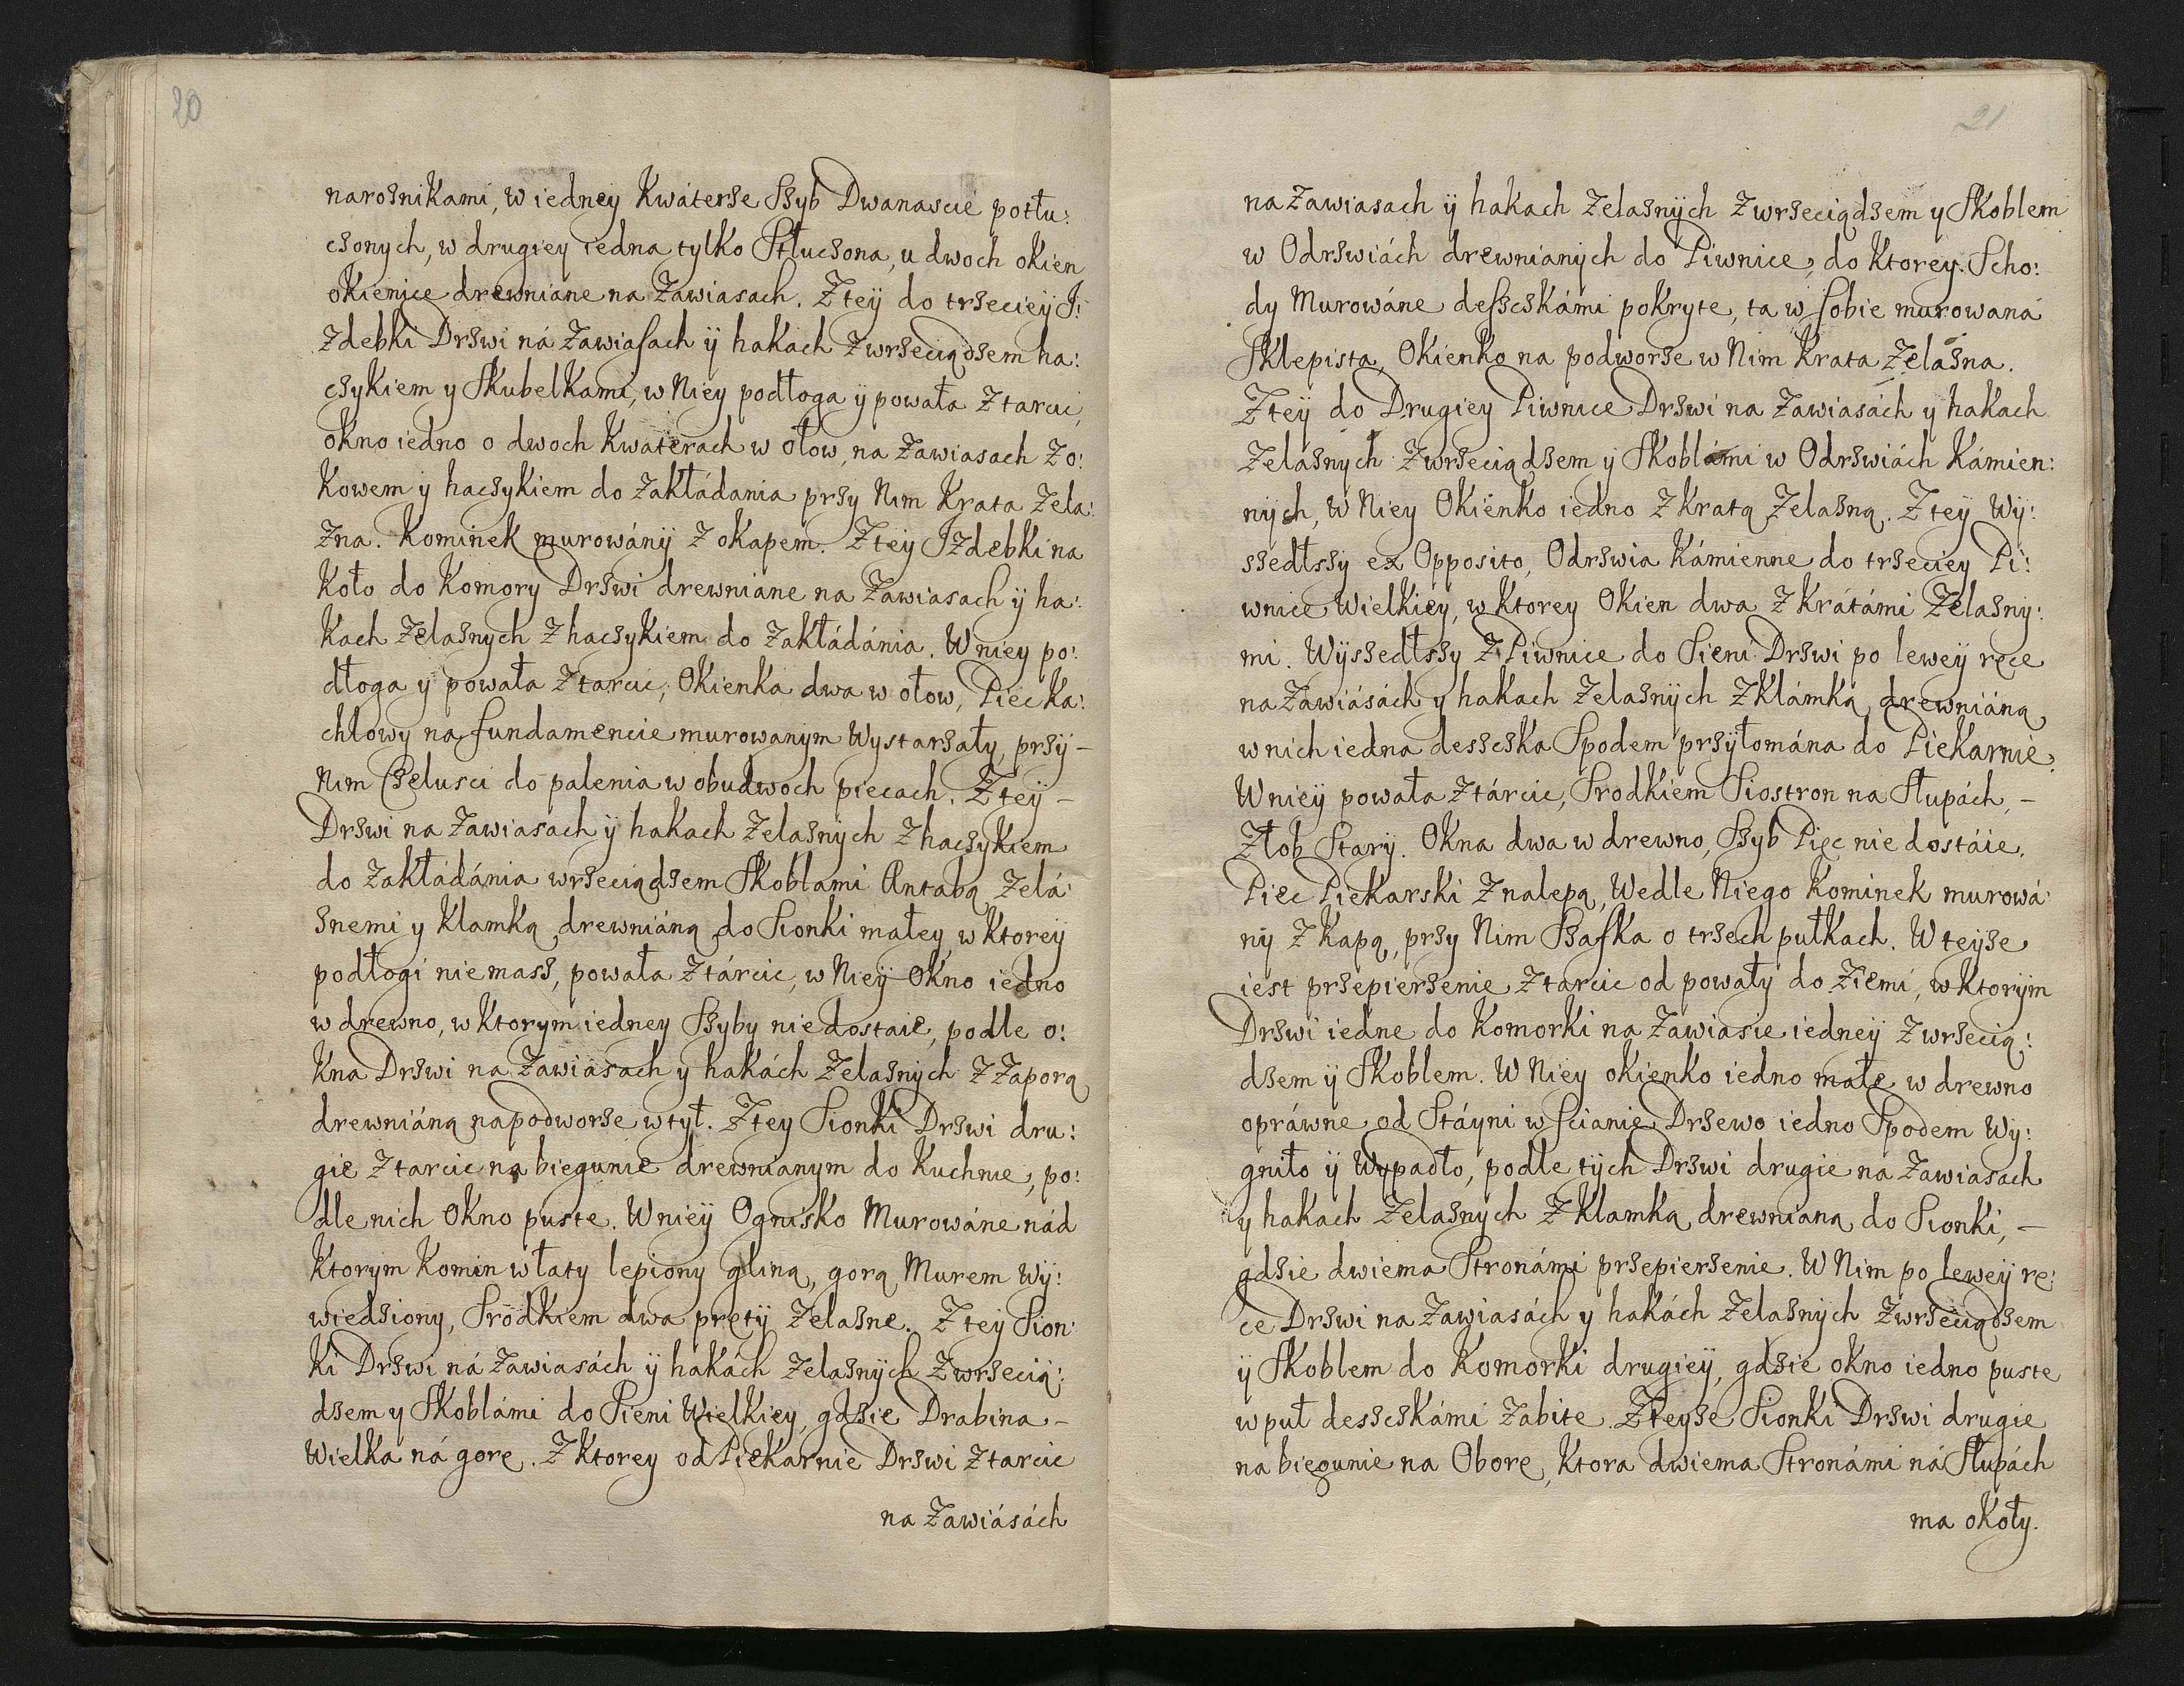 20
narożnikami, w iedney Kwaterze Szyb Dwanascie potłu:
czonych, w drugiey iedna tylko Stłuczona, u dwoch okien
okienice drewniane na Zawiasach. Z teÿ do trzecieÿ J:
zdebki Drzwi ná Zawiasach ÿ hakach z wrzeciądzem ha:
czykiem y Skubelkami, w Nieÿ podłoga ÿ powała z tarcic,
okno iedno o dwoch Kwaterach w ołow, na Zawiasach z o:
kowem y haczykiem do zakłádania przy Nim Krata Zela:
zna. Kominek murowánÿ z okapem. Z tey Jzdebki na
Koło do Komory Drzwi drewniane na Zawiasach ÿ ha:
kach Zelaznych z haczykiem do zakłádánia. W niey po:
dłoga y powała z tarcic, Okienka dwa w ołow, Piec ka:
chlowy na fundamencie murowanym Wystarzały, przÿ –
Nim Czelusci do palenia w obudwoch piecach. Z teÿ –
Drzwi na Zawiasach ÿ hakach Zelaznÿch z haczykiem
do zakłádánia wrzeciądzem Skoblami Antabą Zelá:
znemi y Klamką drewnianą do Sionki małey w Ktoreÿ
podłogi niemasz, powała z tárcic, w Nieÿ Okno iedno
w drewno, w Ktorym iedney Szyby niedostaie, podle o:
kna Drzwi na Zawiasach y hakách Zelaznych z Zaporą
drewniáną na podworze w tył. Z tey Sionki Drzwi dru:
gie z tarcic na biegunie drewnianym do Kuchnie, po:
dle nich Okno puste. W nieÿ Ognisko Murowáne nád
Ktorym Komin w łaty lepiony gliną, gorą Murem Wÿ:
wiedziony, Srodkiem dwa prętÿ Zelazne. Z tey Sion:
ki Drzwi ná Zawiasách ÿ hakách Zelaznÿch z wrzecią:
dzem y Skoblámi do Sieni Wielkiey, gdzie Drabina –
Wielka ná gorę. Z Ktorey od Piekarnie Drzwi z tarcic
na Zawiásách
21
na Zawiasach ÿ hakach Zelaznÿch z wrzeciądzem y Skoblem
w Odrzwiách drewnianÿch do Piwnice, do Ktorey Scho:
dy Murowáne desczkámi pokryte, ta w sobie murowaná
Sklepista, Okienko na podworze w Nim Krata Zelazna.
Z teÿ do Drugiey Piwnice Drzwi na Zawiasách y hakach
Zelaznych z wrzeciądzem ÿ Skoblámi w Odrzwiách Kámien:
nÿch, w Niey Okienko iedno z Kratą Zelazną. Z tey Wÿ:
szedłszÿ ex Opposito, Odrzwia Kámienne do trzeciey Pi:
wnice Wielkiey, w Ktorey Okien dwa z Krátámi Zelaznÿ:
mi. Wÿszedłszy z Piwnice do Sieni Drzwi po leweÿ ręce
na Zawiásách y hakach Zelaznÿch z Klámką drewniáną
w nich iedna deszczka Spodem przÿłomána do Piekarnie.
W nieÿ powała z tárcic, Srodkiem Siostron na Słupách, –
Złob Starÿ. Okna dwa w drewno, Szyb Pięc nie dostáie.
Piec Piekarski z nalepą, Wedle Niego Kominek murowá:
nÿ z Kapą, przy Nim Szafka o trzech pułkach. W teÿze
iest przepierzenie z tarcic od powałÿ do Ziemi, w Ktorÿm
Drzwi iedne do Komorki na Zawiasie iedneÿ z wrzecią:
dzem ÿ Skoblem. W Niey okienko iedno małe w drewno
opráwne od Stáyni w scianie Drzewo iedno Spodem Wÿ:
gniło ÿ Wypadło, podle tÿch Drzwi drugie na Zawiasach
y hakach Zelaznych z Klamką drewnianą do Sionki, –
gdzie dwiema Stronámi przepierzenie. W Nim po leweÿ rę:
ce Drzwi na Zawiasách y hakách Zelaznÿch z wrzeciądzem
ÿ Skoblem do Komorki drugieÿ, gdzie okno iedno puste
w puł deszczkámi zabite. Z teyze Sionki Drzwi drugie
na biegunie na Oborę, Ktora dwiema Stronámi ná Słupách
ma okoły.